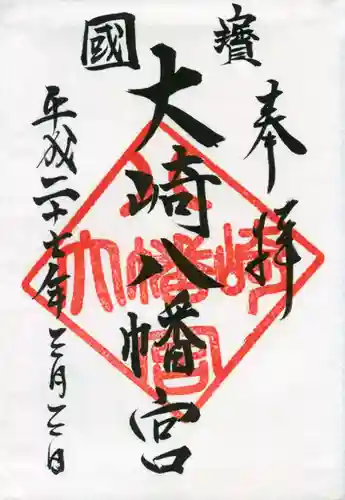 國寶
奉拝
大崎八幡宮
平成二十七年三月三日
大崎八幡宮